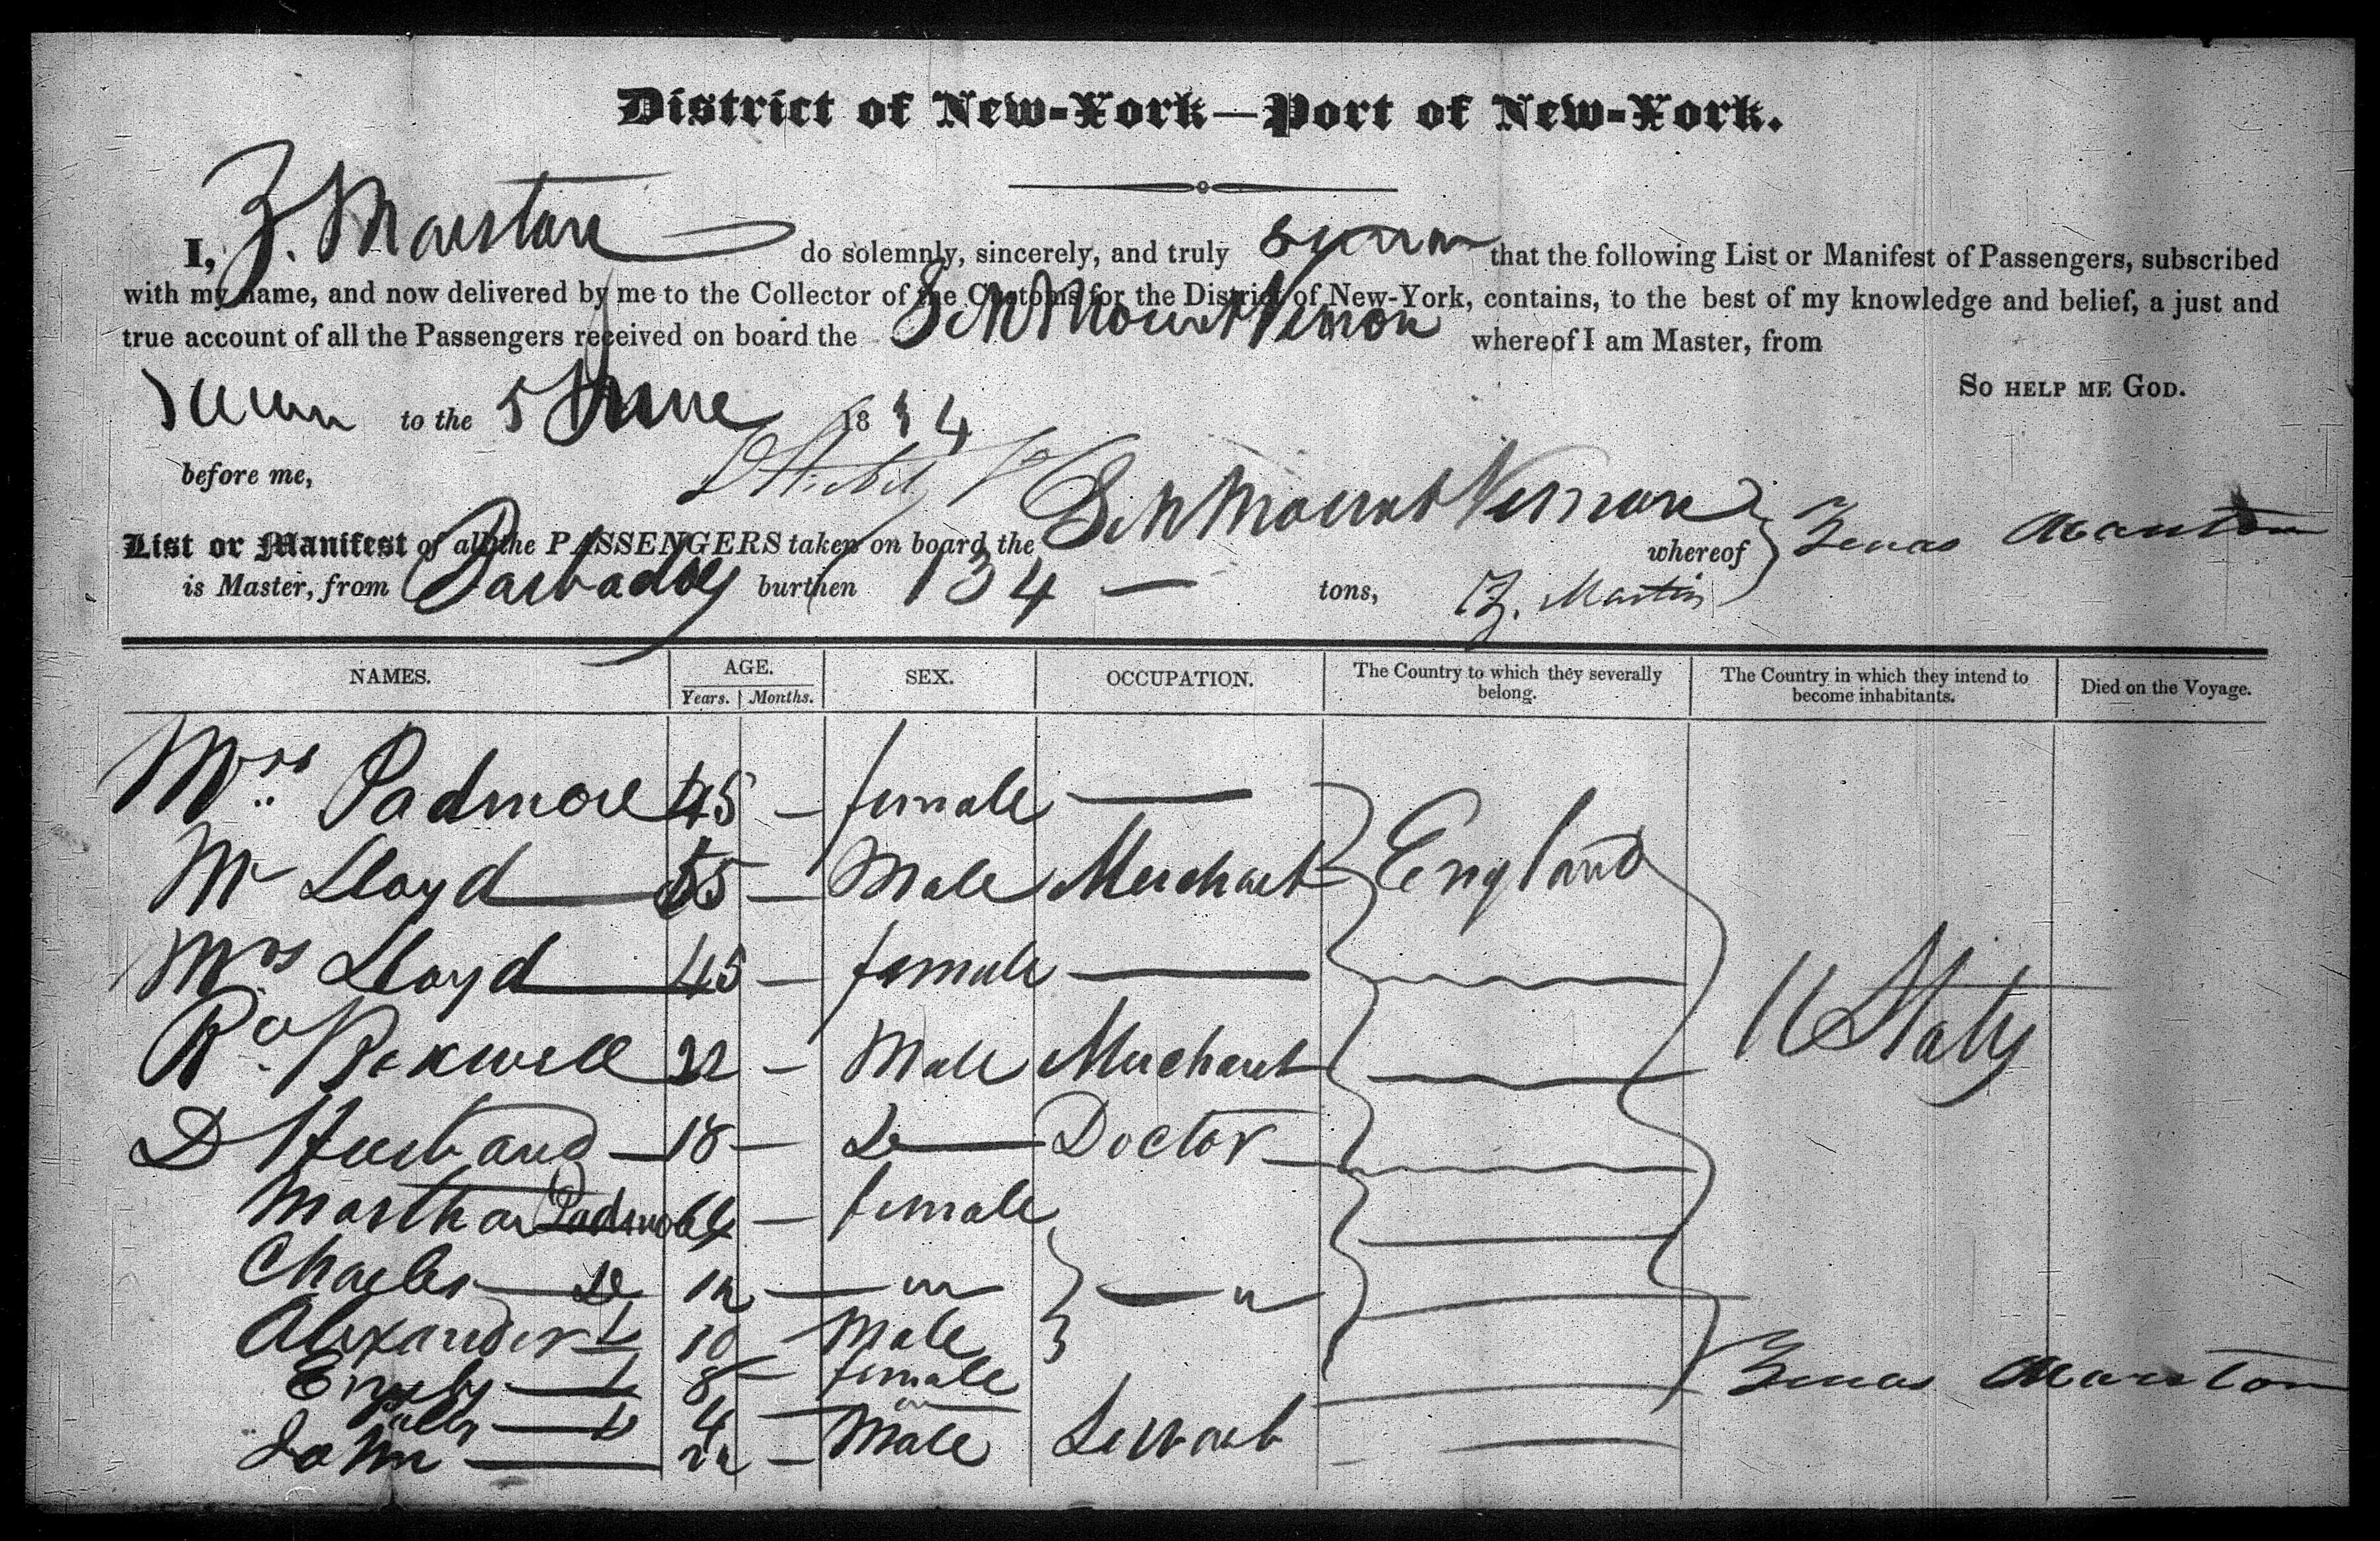 District of New-York—Port of New-York.
I, Z. Marston do solemnly, sincerely, and truly swear that the following List or Manifest of Passengers, subscribed
with my name, and now delivered by me to the Collector of the Customs for the District of New-York, contains, to the best of my knowledge and belief, a just and
true account of all the Passengers received on board the Sch Mount Vernon whereof I am Master, from
So help me God.
Sworn to the 5 June 1834
before me,
List or Manifest of all the PASSENGERS taken on board the Sch Mount Vernon whereof Zenas Marston
is Master, from Barbadoes burthen 134 — tons, Z. Martin
NAMES. AGE. SEX. OCCUPATION. The Country to which they severally belong. The Country in which they intend to become inhabitants. Died on the Voyage.
Years. Months.
Mrs Padmore 45 — female —
Mr Lloyd 55 — Male Merchant England
Mrs Lloyd 45 — female —
Male Merchant U States
D Husband 18 — Do Doctor
Martha Padmore — female
Charles Do 12 —
Alexander 10 Male
8 female
4
John 22 — Male Servant
Zenas Marston